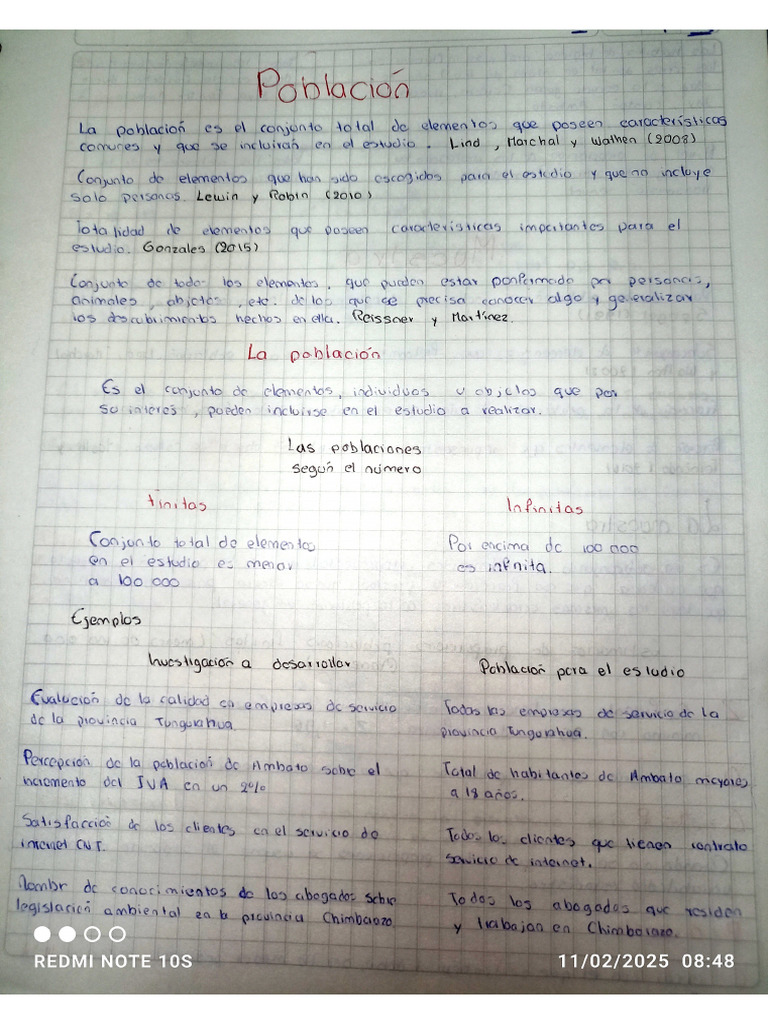 Población
La población es el conjunto total de elementos que poseen características
comunes y que se incluirán en el estudio. Lind, Marchal y Wathen (2008)
Conjunto de elementos que han sido escogidos para el estudio y que no incluye
solo personas. Lewin y Robin (2010)
Totalidad de elementos que poseen características importantes para el
estudio. Gonzales (2015)
Conjunto de todos los elementos, que pueden estar por personas,
animales, objetos, etc. de los que se precisa conocer algo y generalizar
los descubrimientos hechos en ella. Reissner y Martínez.
La población
Es el conjunto de elementos, individuos u objetos que por
su interés, pueden incluirse en el estudio a realizar.
Las poblaciones
según el número
finitas Infinitas
Conjunto total de elementos Por encima de 100 000
en el estudio es menor es infinita.
a 100 000
Ejemplos
Investigación a desarrollar Población para el estudio
Evaluación de la calidad en empresas de servicio Todas las empresas de servicio de la
de la provincia Tungurahua. provincia Tungurahua.
Percepción de la población de Ambato sobre el Total de habitantes de Ambato mayores
incremento del IVA en un 2% a 18 años.
Satisfacción de los clientes en el servicio de Todos los clientes que tienen contrato
internet CNT. servicio de internet.
de conocimientos de los abogados sobre Todos los abogados que residen
legislación ambiental en la provincia Chimborazo. y trabajan en Chimborazo.
REDMI NOTE 10S 11/02/2025 08:48